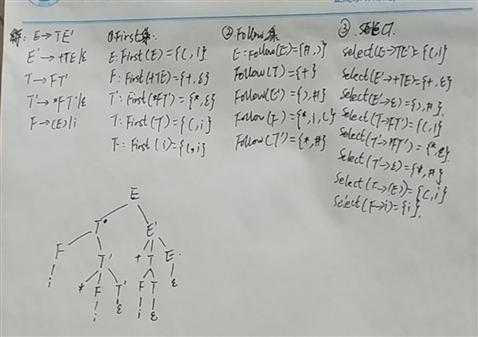 解: E→TE'
E'→+TE'/ε
T→FT'
T'→*FT'/ε
F→(E)/i
①First集.
E: First(E)={(,i}
F: First(+TE)={+,ε}
T': First(*FT')={*,ε}
T: First(T)={(,i}
F: First(i)={(,i}
②Follow集
E: Follow(E)={#,)}
Follow(T)={+}
Follow(E')={),#}
Follow(F)={*,),(}
Follow(T')={*,#}
③ SELECT.
Select(E→TE')={(,i}
Select(E'→+TE)={+,ε}
Select(E'→ε)={),#}
Select(T→FT')={(,i}
Select(T'→*FT')={*,ε}
Select(T'→ε)={*,#}
Select(F→(E))={(,i}
Select(F→i)={i}.
E
T E'
F T' + T E'
i * F T' F T ε
i ε i ε